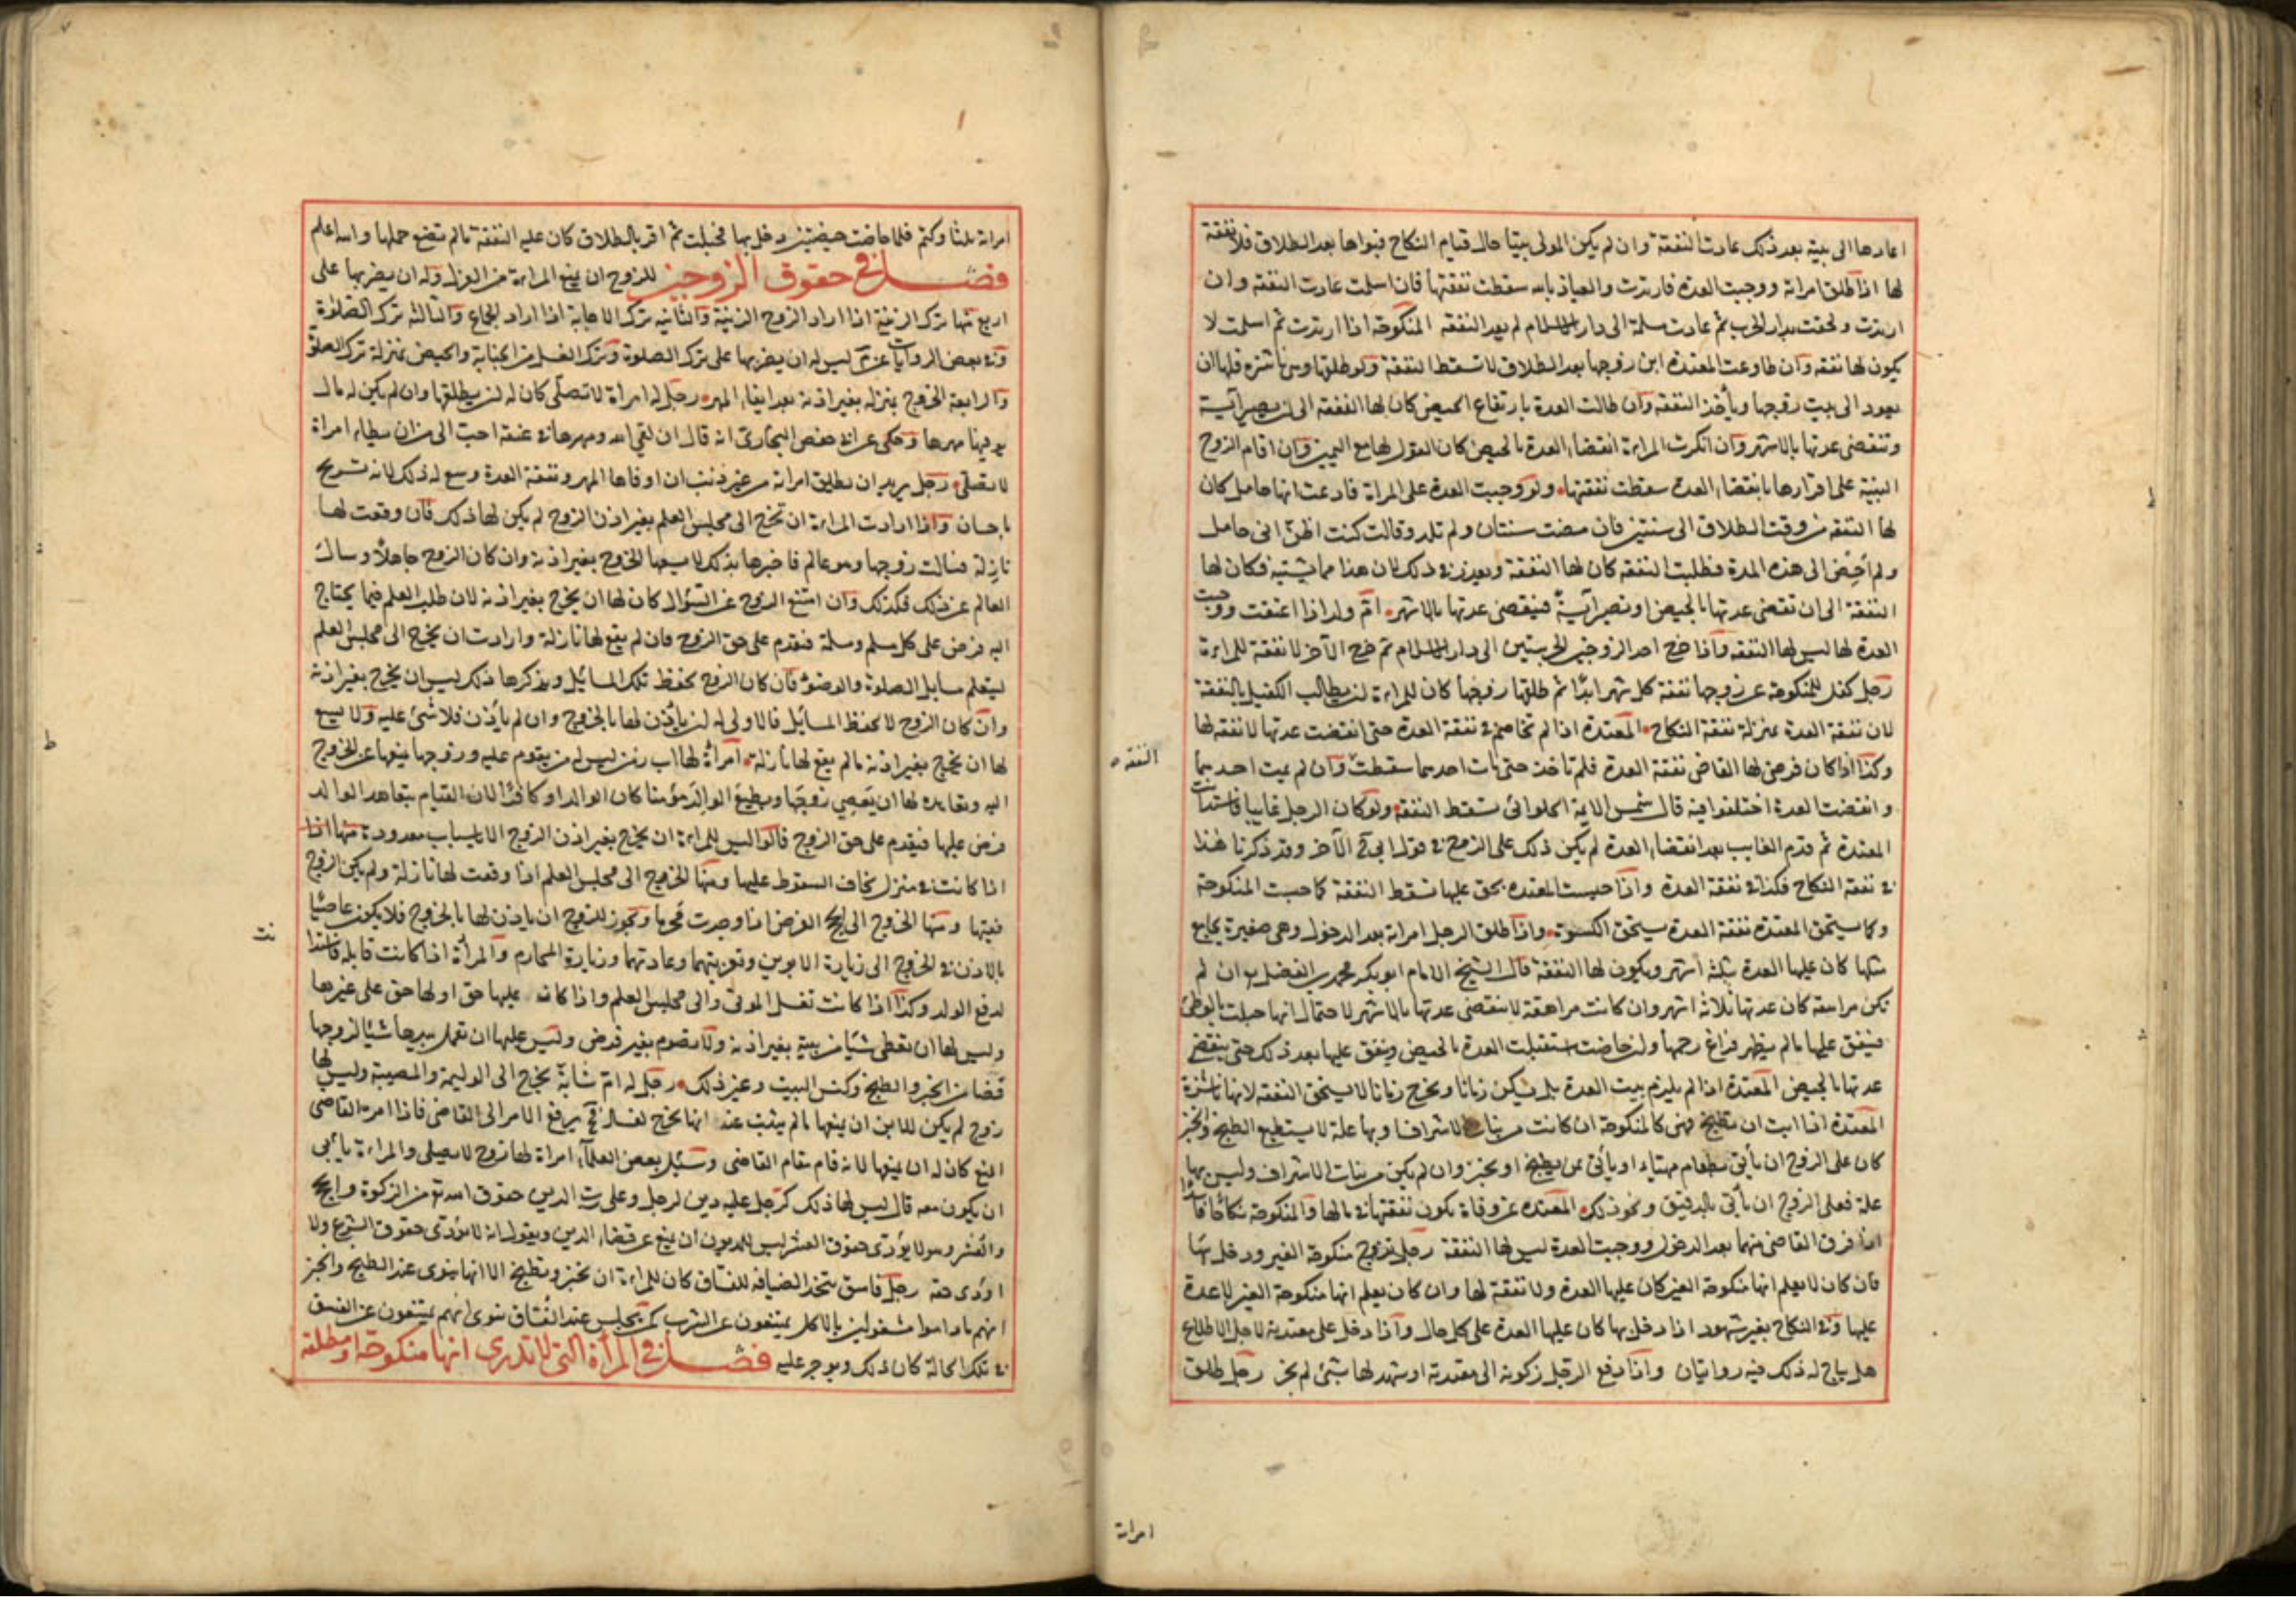 اعادها الى بيته بعد ذلك عادت النفقة وان لم يكن المولى بيتا حال قيام النكاح فبواها بعد الطلاق فلا نفقة
لها اذا طلق امراته ووجبت العدة فارتدت والعياذ بالله سقطت نفقتها فان اسلمت عادت النفقه وان
ارتدت ولحقت بدار الحرب ثم عادت مسلمة الى دار الاسلام لم يعد النفقه المنكوحة اذا ارتدت ثم اسلمت لا
يكون لها نفقه وان طاوعت المعتدة ابن زوجها بعد الطلاق لا تسقط النفقة ولو طلقها وهى ناشزه فلها ان
يعود الى بيت زوجها ويأخذ النفقه وان طالت العدة بارتفاع الحيض كان لها النفقه الى ان يصير آيسة
وتنقضى عدتها بالاشهر وان انكرت المراءة انقضاء العدة بالحيض كان القول لها مع اليمين وان اقام الزوج
البينة على اقرارها بانقضاء العدة سقطت نفقتها ولو وجبت العدة على المراة فادعت انها حامل كان
لها النفقه من وقت الطلاق الى سنتين فان مضت سنتان ولم تلد وقالت كنت اظن انى حامل
ولم أحض الى هذه المدة فطلبت النفقه كان لها النفقة وبعذر فى ذلك لان هذا مما يشتبه فكان لها
النفقة الى ان تنقضى عدتها بالحيض او تصير آيسةً فينقضى عدتها بالاشهر امّ ولد اذا اعتقت ووجبت
العدة لها ليس لها النفقه واذا خرج احد الزوجين الحربيين الى دار الاسلام ثم خرج الآخر لا نفقة للمراءة
رجل كفل للمنكوحة عن زوجها نفقة كل شهر ابدًا ثم طلقها زوجها كان للمراءة ان يطالب الكفيل بالنفقة
لان نفقة العدة بمنزلة نفقة النكاح المعتدة اذا لم تخاصم فى نفقة العدة حتى انقضت عدتها لا نفقه لها
وكذا اذا كان فرض لها القاضى نفقة العدة فلم تاخذ حتى مات احدهما سقطت وان لم يمت احدهما
وانقضت العدة اختلفوا فيه قال شمس الايمة الحلوائى تسقط النفقه ولو كان الرجل غايبا فاستدانت
المعتدة ثم قدم الغايب بعد انقضاء العدة لم يكن ذلك على الزوج فى قول ابى ح الآخر وقد ذكرنا هذا
فى نفقة النكاح فكذا فى نفقة العدة واذا حبست المعتدة بحق عليها تسقط النفقة كما حبست المنكوحة
وكما يستحق المعتدة نفقة العدة يستحق الكسوة واذا طلق الرجل امراته بعد الدخول وهى صغيرة يجامع
مثلها كان عليها العدة بثلثة أشهر ويكون لها النفقة قال الشيخ الامام ابو بكر محمد بن الفضل هو ان لم
تكن مراهقه كان عدتها ثلاثة اشهر وان كانت مراهقة لا ينقضى عدتها بالاشهر لاحتمال انها حبلت بالوطئ
فينفق عليها ما لم يظهر فراغ رحمها وان حاضت استقبلت العدة بالحيض وينفق عليها بعد ذلك حتى ينقضى
عدتها بالحيض المعتدة اذا لم يلزم بيت العدة بل تسكن زمانا وتخرج زمانا لا يستحق النفقه لانها ناشزة
المعتدة اذا ابت ان تطبخ فهى كالمنكوحة ان كانت من بنات الاشراف او بها علة لا يستطيع الطبخ والخبز
كان على الزوج ان يأتى بطعام مهيّاء او يأتى بمن يطبخ او يخبز وان لم يكن من بنات الاشراف وليس بها
علة فعلى الزوج ان يأتى بالدقيق ونحو ذلك المعتدة عن وفاة يكون نفقتها فى مالها والمنكوحة نكاحًا فاسدًا
اذا فرق القاضى بينهما بعد الدخول ووجبت العدة ليس لها النفقة رجل تزوج منكوحة الغير ودخل بها
فان كان لا يعلم انها منكوحة الغير كان عليها العدة ولا نفقة لها وان كان يعلم انها منكوحة الغير لا عدة
عليها وفى النكاح بغير شهود اذا دخل بها كان عليها العدة على كل حال واذا دخل على معتدته لاجل الاطلاع
هل يباح له ذلك فيه روايتان واذا دفع الرجل زكوته الى معتدته او شهد لها بشئ لم يجز رجل طلق
النفقه
امراته
امراته ثلثا وكتم فلما حاضت حيضتين دخل بها فحبلت ثم اقر بالطلاق كان عليه النفقة ما لم تضع حملها والله اعلم
فصل فى حقوق الزوجين للزوج ان يمنع المراءة من الغزل وله ان يضربها على
اربع منها ترك الزينة اذا اراد الزوج الزينة والثانيه ترك الاجابة اذا اراد الجماع والثالثه ترك الصلوة
وفى بعض الروايات عن محمد ليس له ان يضربها على ترك الصلوة وترك الغسل من الجنابة والحيض بمنزلة ترك الصلوة
والرابعة الخروج بمنزله بغير اذنه بعد ايفاء المهر رجل له امراة لا تصلّى كان له ان يطلقها وان لم يكن له مال
يوفيها مهرها وحكى عن ابى حفص البخارى انه قال ان لقى الله ومهرها فى عنقه احب الى من ان يطاء امراة
لا تصلى رجل يريد ان يطلق امراته من غير ذنب ان اوفاها المهر ونفقة العدة وسع له ذلك لانه تسريح
باحسان واذا ارادت المراءة ان تخرج الى مجلس العلم بغير اذن الزوج لم يكن لها ذلك فان وقعت لها
نازلة فسالت زوجها وهو عالم فاخبرها بذلك لا يسعها الخروج بغير اذنه وان كان الزوج جاهلاً وسال
العالم عن ذلك فكذلك وان امتنع الزوج عن السؤال كان لها ان يخرج بغير اذنه لان طلب العلم فيما يحتاج
اليه فرض على كل مسلم ومسلمة فيقدم على حق الزوج فان لم يقع لها نازلة وارادت ان يخرج الى مجلس العلم
ليتعلم مسايل الصلوة والوضوء فان كان الزوج يحفظ تلك المسائل ويذكرها ذلك ليس ان يخرج بغير اذنه
وان كان الزوج لا يحفظ المسائل فالاولى له ان يأذن لها بالخروج وان لم يأذن فلا شئ عليه ولا يسع
لها ان يخرج بغير اذنه ما لم يقع لها نازلة امرأة لها اب زمن ليس له من يقوم عليه وزوجها يمنعها عن الخروج
اليه وتعاهده لها ان يعصى زوجها ويطيع الوالد مؤمنا كان الوالد او كافرًا لان القيام بتعاهد الوالد
فرض عليها فيقدم على حق الزوج قالوا ليس للمراءة ان يخرج بغير اذن الزوج الا باسباب معدودة منها اذا
اذا كانت فى منزل يخاف السقوط عليها ومنها الخروج الى مجلس العلم اذا وقعت لها نازلة ولم يكن الزوج
فقيها ومنها الخروج الى الحج الفرض اذا وجدت محرما ويجوز للزوج ان ياذن لها بالخروج فلا يكون عاصيًا
بالاذن فى الخروج الى زيارة الابوين وتعزيتهما وعيادتهما وزيارة المحارم والمرأة اذا كانت قابلة
لدفع الولد وكذا اذا كانت تغسل الموتى والى مجلس العلم واذا كان عليها حق او لها حق على غيرها
وليس لها ان تعطى شيًا من بيته بغير اذنه ولا تصوم بغير فرض وليس عليها ان تعمل بيدها شيئًا لزوجها
قضاء من الخبز والطبخ وكنس البيت وغير ذلك رجل له امّ شابّة يخرج الى الوليمة والمصيبة وليس لها
زوج لم يكن للابن ان يمنعها ما لم يثبت عنده انها يخرج لفساد فح يرفع الامر الى القاضى فاذا امره القاضى
المنع كان له ان يمنعها لانه قام مقام القاضى وسئل بعض العلماء امراة لها زوج لا يصلى والمراءة يابى
ان يكون معه قال ليس لها ذلك كرجل عليه دين لرجل وعلى رب الدين حقوق الله تع من الزكوة والحج
والعشر وهو لا يؤدى حقوق العشر ليس للمديون ان يمنع عن قضاء الدين ويقول انه لا يؤدى حقوق الشرع ولا
اؤدى حقه رجل فاسق يتخذ الضيافه للفساق كان للمراءة ان تخبز وتطبخ الا انها ينوى عند الطبخ والخبز
انهم ما داموا مشغولين بالاكل يمتنعون عن الشرب كمن يجلس عند الفُسّاق ينوى انهم يمتنعون عن الفسق
فى تلك الحالة كان ذلك ويوجر عليه فصل فى المرأة التى لا تدرى انها منكوحة او مطلقة